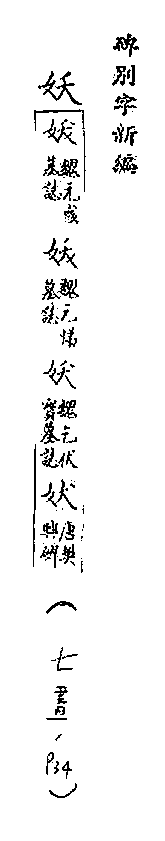 碑別字新編
妖
魏元彧墓誌
魏元悌墓誌
魏乞伏寶墓誌
唐樊興碑
(七畫,P34)